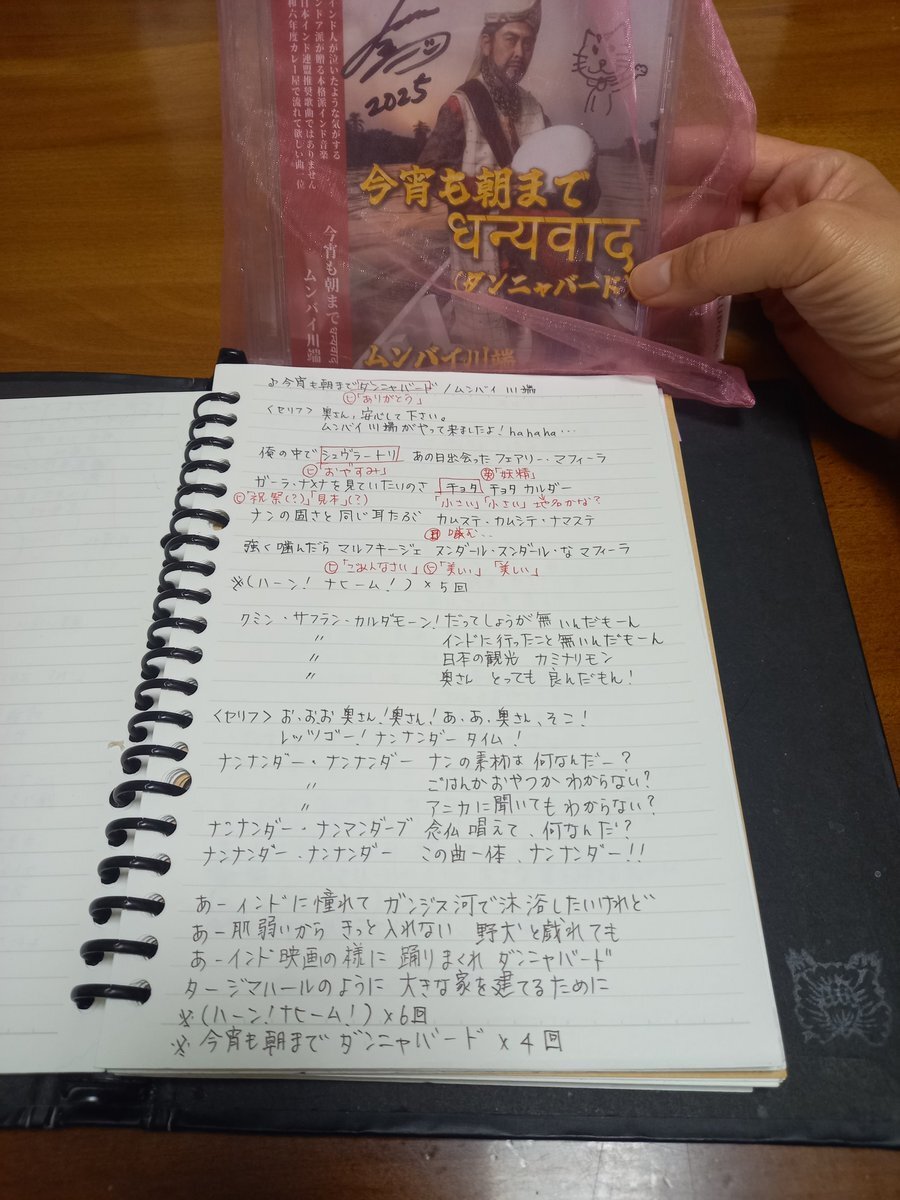 インド人が泣いたような気がする
インドア派が贈る本格派インド音楽
日本インド連盟推奨歌曲ではありません
令和六年度カレー屋で流れて欲しい曲一位
今宵も朝まで धन्यवाद
ムンバイ川端
2025
今宵も朝まで
धन्यवाद
(ダンニャバード)
ムンバイ川端
♪今宵も朝までダンニャバード / ムンバイ川端
ヒ「ありがとう」
〈セリフ〉 奥さん、安心して下さい。
ムンバイ川端がやって来ましたよ！hahaha…
俺の中でシュヴラートリ あの日出会ったフェアリー・マフィーラ
ヒ「おやすみ」 英「妖精」
ガーラ・ナメナを見ていたいのさ チョタ チョタ カルダー
ヒ「祝祭(?)」「見本」(?) 「小さい」「小さい」地名かな?
ナンの固さと同じ耳たぶ カムステ・カムシテ・ナマステ
日 噛む..
強く噛んだら マルフキージェ スンダール・スンダール・な マフィーラ
ヒ「ごめんなさい」 ヒ「美しい」「美しい」
※(ハーン！ナヒーム！) × 5回
クミン・サフラン・カルダモーン！だってしょうが無いんだもーん
〃 インドに行ったこと無いんだもーん
〃 日本の観光 カミナリモン
〃 奥さん とっても 良んだもん！
〈セリフ〉 お、お、お奥さん！奥さん！あ、あ、奥さん、そこ！
レッツゴー！ナンナンダー タイム！
ナンナンダー・ナンナンダー ナンの素材は何なんだー？
〃 ごはんかおやつかわからない？
〃 アニカに聞いてもわからない？
ナンナンダー・ナンマンダーブ 念仏唱えて、何なんだ？
ナンナンダー・ナンナンダー この曲一体、ナンナンダー!!
あーインドに憧れて ガンジス河で沐浴したいけれど
あー肌弱いから きっと入れない 野犬と戯れても
あーインド映画の様に 踊りまくれ ダンニャバード
タージマハールのように 大きな家を建てるために
※(ハーン！ナヒーム！) × 6回
※今宵も朝まで ダンニャバード × 4回